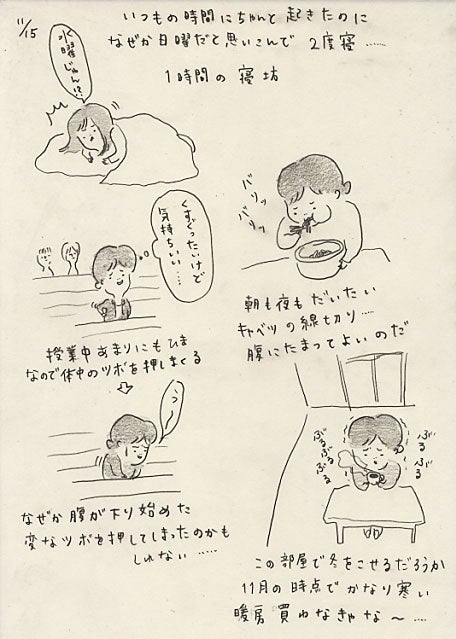 11/15
いつもの時間にちゃんと起きたのに
なぜか日曜だと思いこんで 2度寝……
1時間の寝坊
水曜じゃん!?
くすぐったいけど
気持ちいい…
授業中あまりにもひま
なので体中のツボを押しまくる
うっ
なぜか腹が下り始めた
変なツボを押してしまったのかも
しれない……
バリッ
バリッ
朝も夜もだいたい
キャベツの線切り…
腹にたまってよいのだ
ぶるぶる
ぶるぶる
ぶるぶる
ぶる
ぶる
この部屋で冬をこせるだろうか
11月の時点でかなり寒い
暖房買わなきゃな〜……